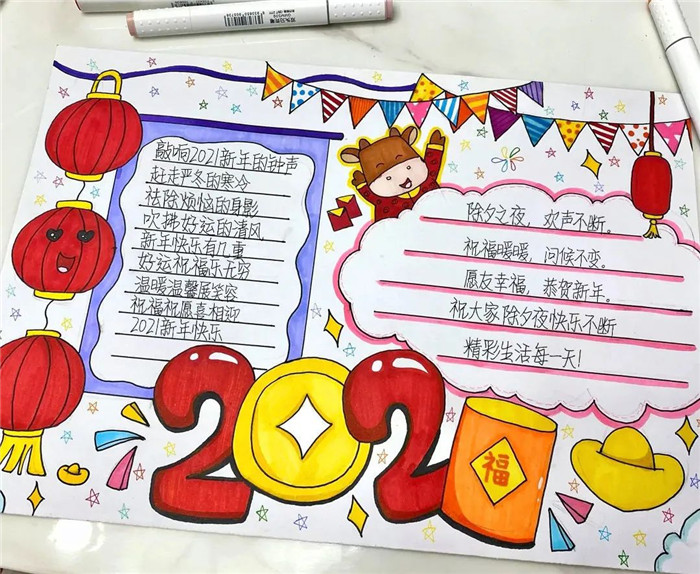 敲响2021新年的钟声
赶走严冬的寒冷
祛除烦恼的身影
吹拂好运的清风
新年快乐有几重
好运祝福乐无穷
温暖温馨展笑容
祝福祝愿喜相迎
2021新年快乐
除夕之夜，欢声不断。
祝福暖暖，问候不变。
愿友幸福，恭贺新年。
祝大家除夕夜快乐不断
精彩生活每一天!
202
福